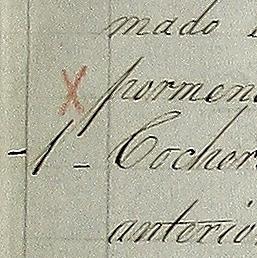 mado
X pormen
- 1 - Cocher
anterio